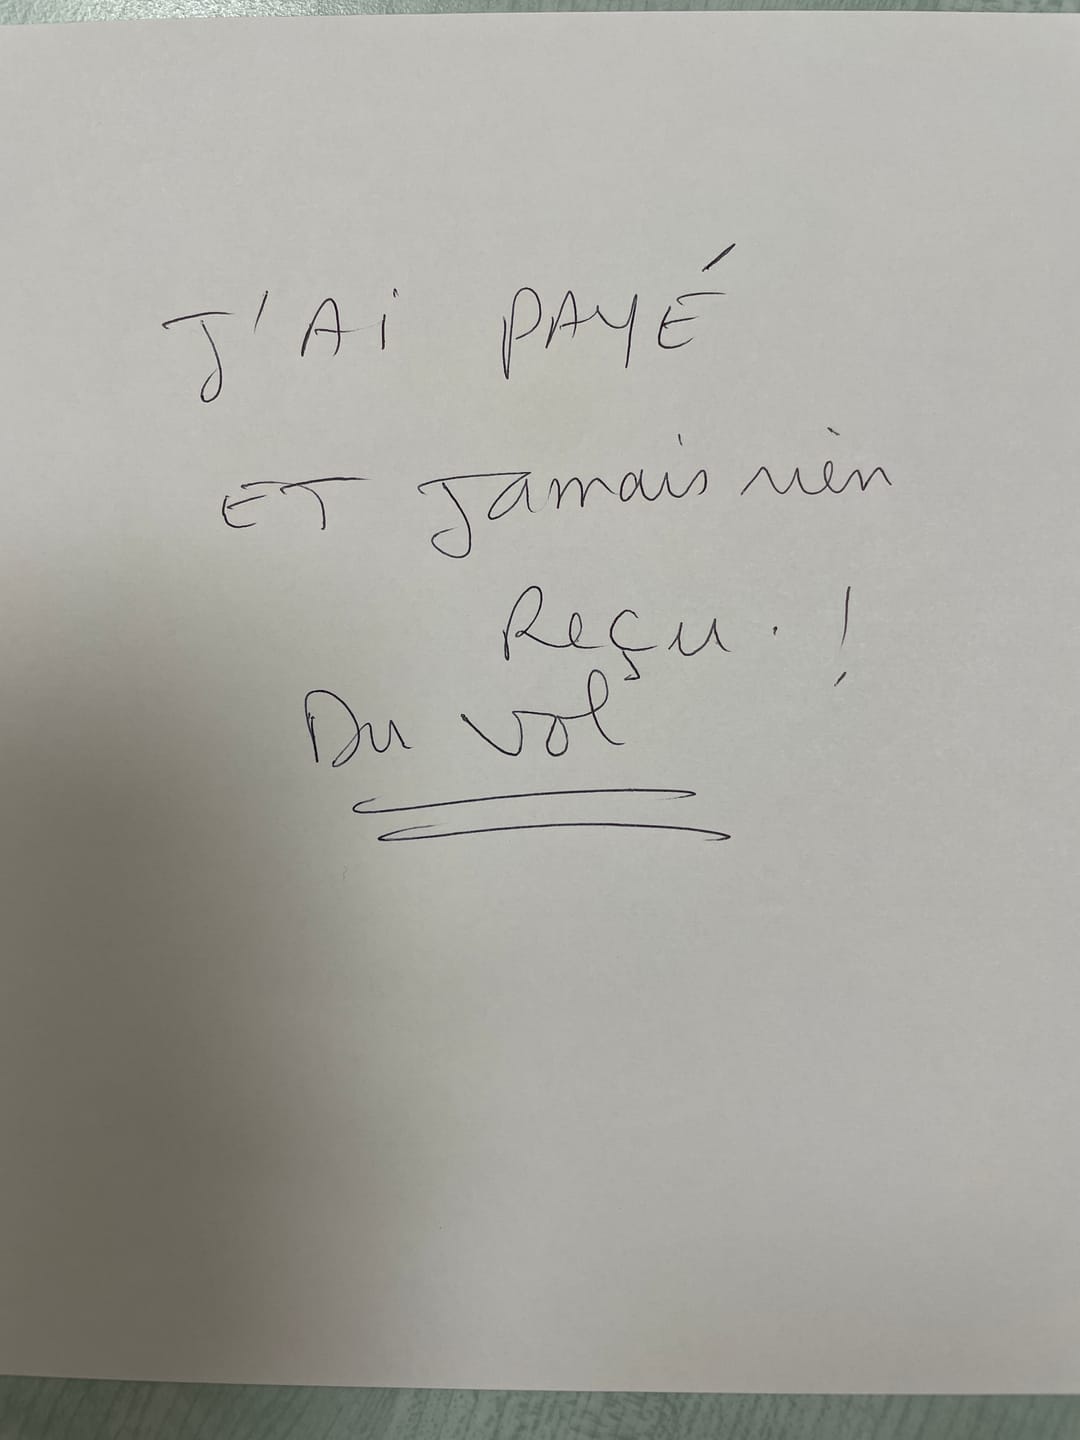 J'Ai PAYÉ
ET Jamais rien
Reçu . !
Du vol